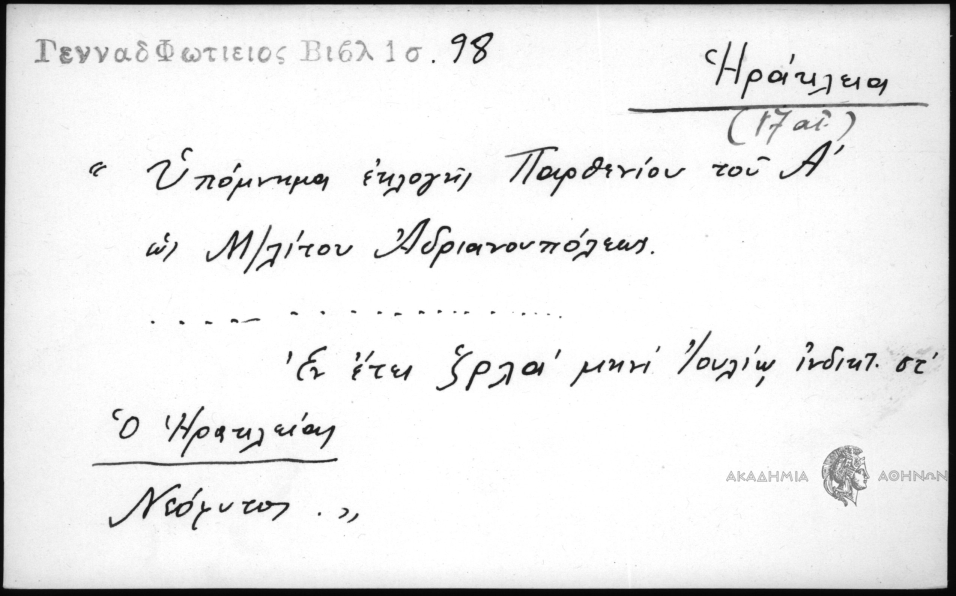 ΓενναδΦωτιειος Βιβλ 1σ. 98
Ἡράκλεια
(17 αἰ.)
“ Ὑπόμνημα ἐκλογῆς Παρθενίου τοῦ Α'
ὡς Μ/λίτου Ἀδριανουπόλεως.
..... ..............
Ἐν ἔτει ζρλα' μηνὶ Ἰουλίῳ ἰνδικτ. στ'
Ὁ Ἡρακλείας
Νεόφυτος . ”
ΑΚΑΔΗΜΙΑ ΑΘΗΝΩΝ